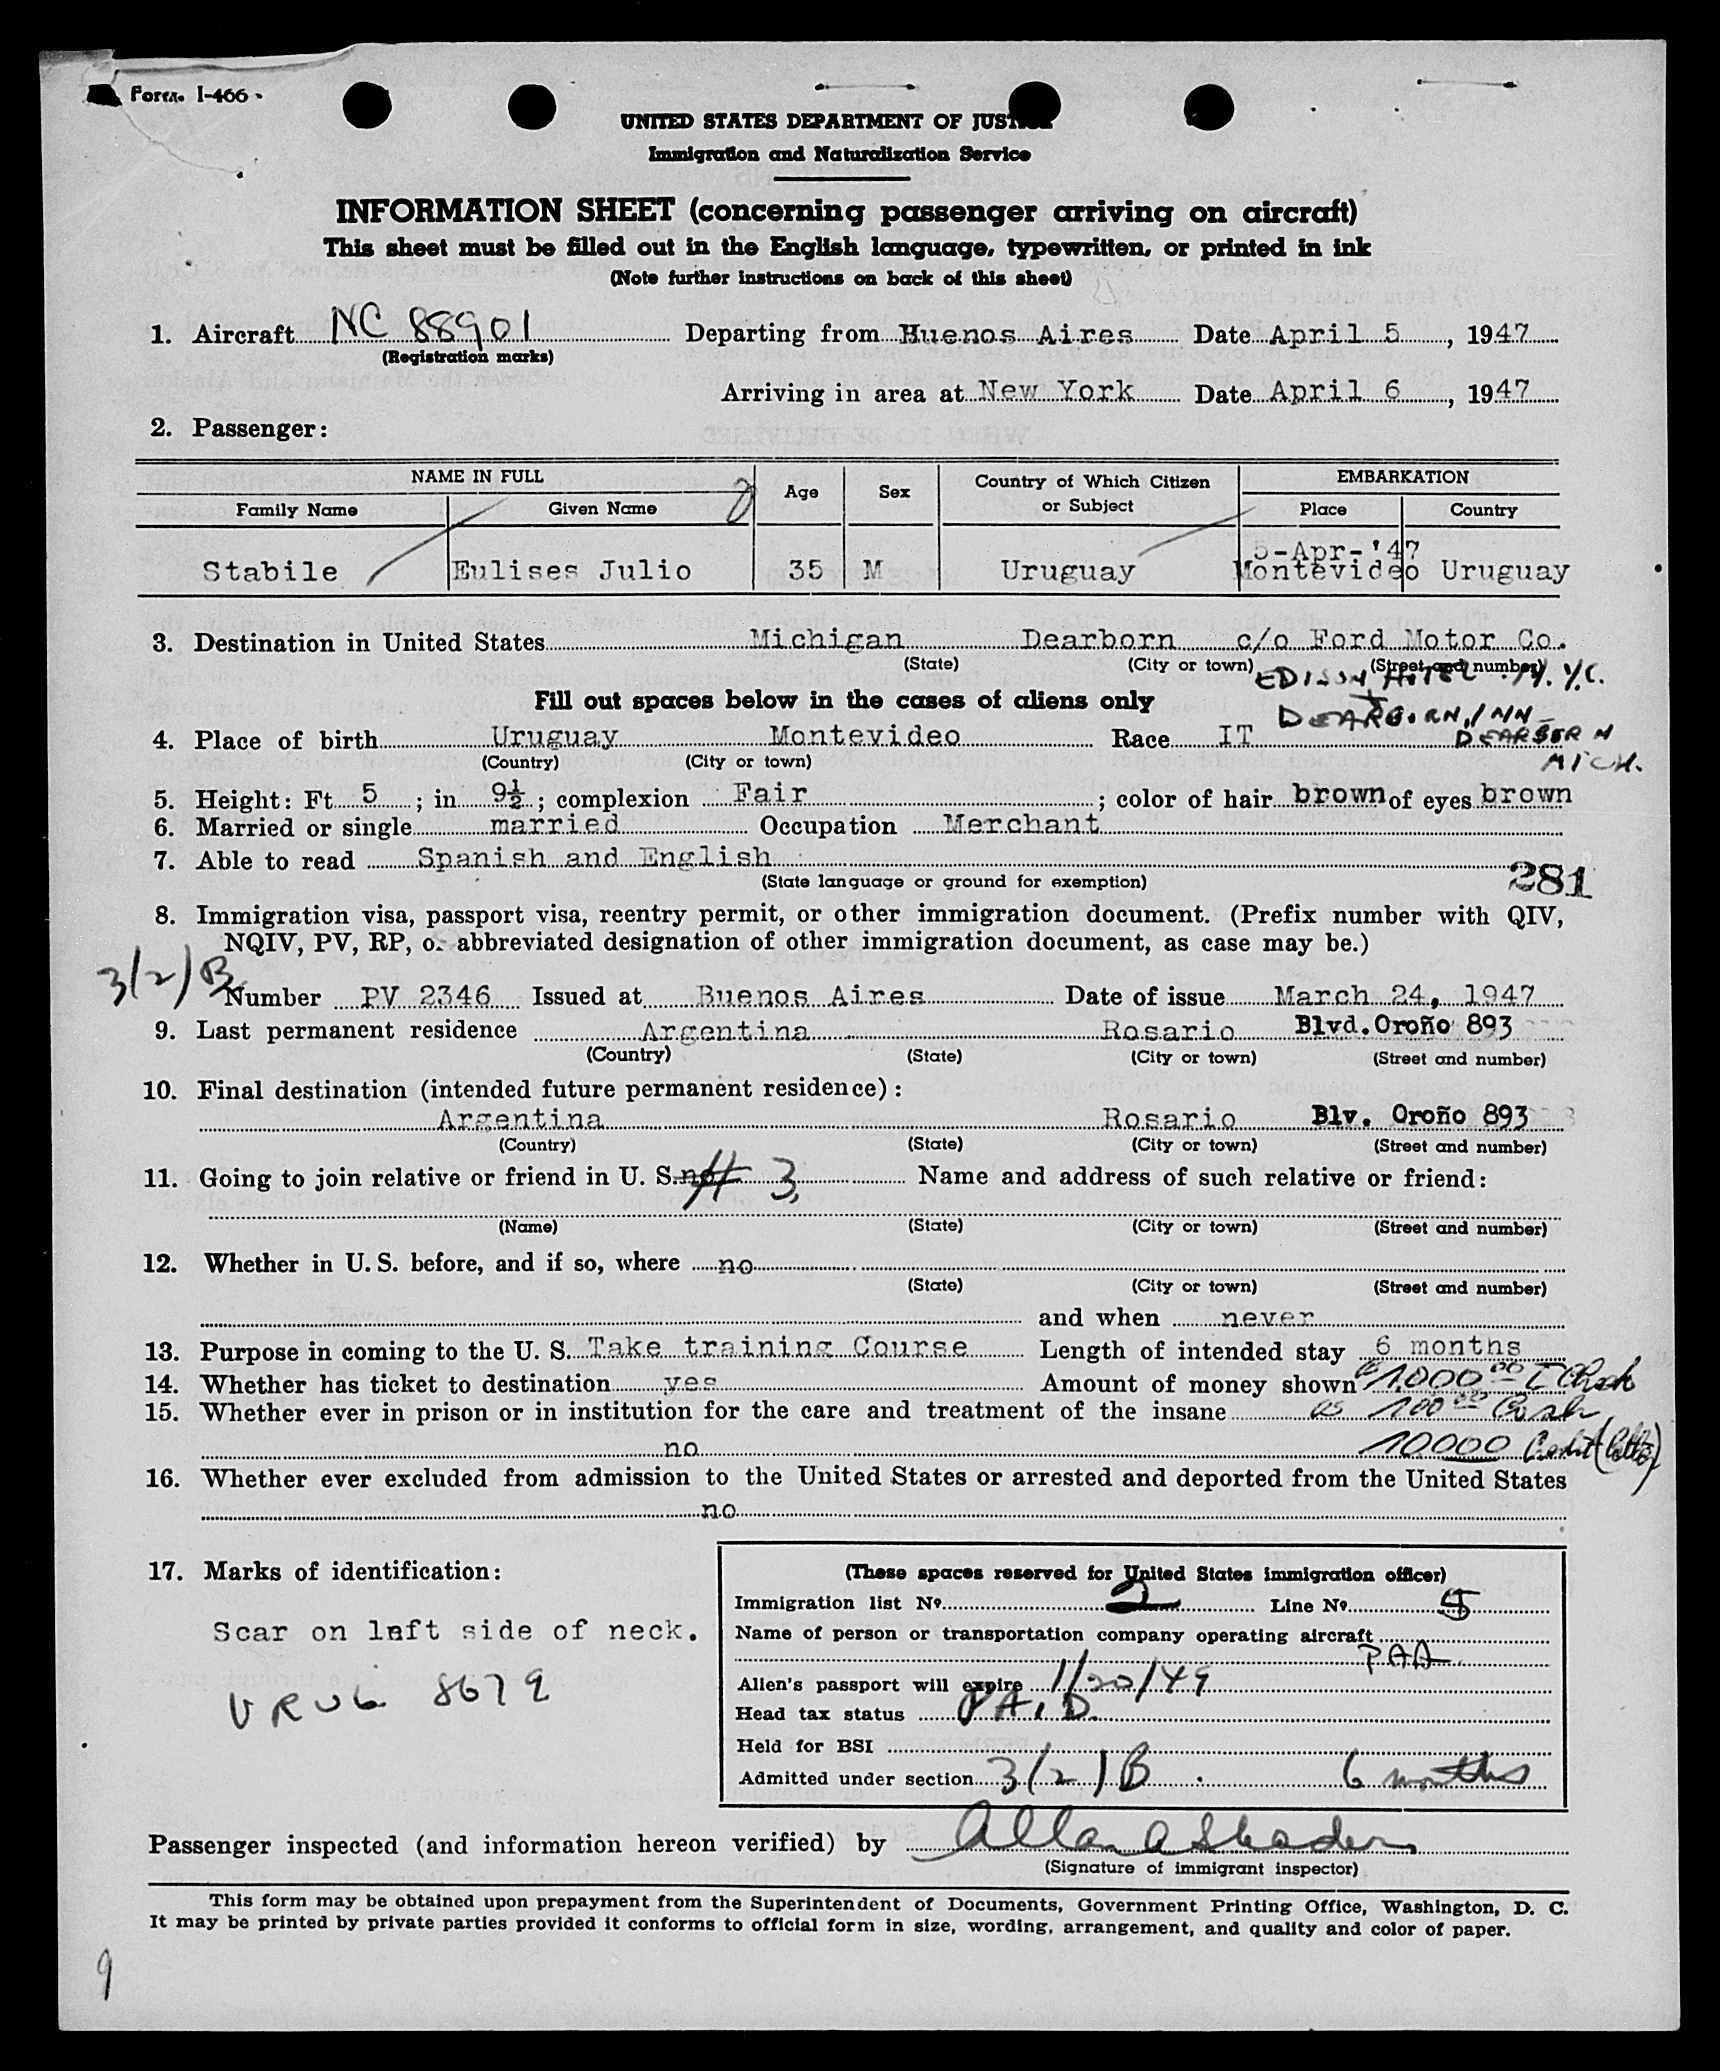 Form I-466
UNITED STATES DEPARTMENT OF JUSTICE
Immigration and Naturalization Service
INFORMATION SHEET (concerning passenger arriving on aircraft)
This sheet must be filled out in the English language, typewritten, or printed in ink
(Note further instructions on back of this sheet)
1. Aircraft NC 88901 Departing from Buenos Aires Date April 5, 1947
(Registration marks)
Arriving in area at New York Date April 6, 1947
2. Passenger:
NAME IN FULL Age Sex Country of Which Citizen or Subject EMBARKATION
Family Name Given Name Place Country
5-Apr-'47
Stabile Eulises Julio 35 M Uruguay Montevideo Uruguay
3. Destination in United States Michigan Dearborn c/o Ford Motor Co.
(State) (City or town) (Street and number)
EDISON HOTEL N.Y.C.
Fill out spaces below in the cases of aliens only
DEARBORN INN -
4. Place of birth Uruguay Montevideo Race IT DEARBORN
(Country) (City or town) MICH.
5. Height: Ft. 5; in 9½; complexion Fair; color of hair brown of eyes brown
6. Married or single married Occupation Merchant
7. Able to read Spanish and English
(State language or ground for exemption) 281
8. Immigration visa, passport visa, reentry permit, or other immigration document. (Prefix number with QIV,
NQIV, PV, RP, or abbreviated designation of other immigration document, as case may be.)
3(2)B
Number PV 2346 Issued at Buenos Aires Date of issue March 24, 1947
9. Last permanent residence Argentina Rosario Blvd. Oroño 893
(Country) (State) (City or town) (Street and number)
10. Final destination (intended future permanent residence):
Argentina Rosario Blv. Oroño 893
(Country) (State) (City or town) (Street and number)
11. Going to join relative or friend in U. S. no # 3, Name and address of such relative or friend:
(Name) (State) (City or town) (Street and number)
12. Whether in U. S. before, and if so, where no
(State) (City or town) (Street and number)
and when never
13. Purpose in coming to the U. S. Take training Course Length of intended stay 6 months
14. Whether has ticket to destination yes Amount of money shown 1,000 00 T Check
15. Whether ever in prison or in institution for the care and treatment of the insane 100 00 Cash
no 10000
16. Whether ever excluded from admission to the United States or arrested and deported from the United States
no
17. Marks of identification:
Scar on left side of neck.
URUG 8679
(These spaces reserved for United States immigration officer)
Immigration list No. 2 Line No. 5
Name of person or transportation company operating aircraft
PAA
Alien's passport will expire 1/20/49
Head tax status PAID.
Held for BSI
Admitted under section 3(2)B 6 months
Passenger inspected (and information hereon verified) by Allan A
(Signature of immigrant inspector)
This form may be obtained upon prepayment from the Superintendent of Documents, Government Printing Office, Washington, D. C.
It may be printed by private parties provided it conforms to official form in size, wording, arrangement, and quality and color of paper.
9